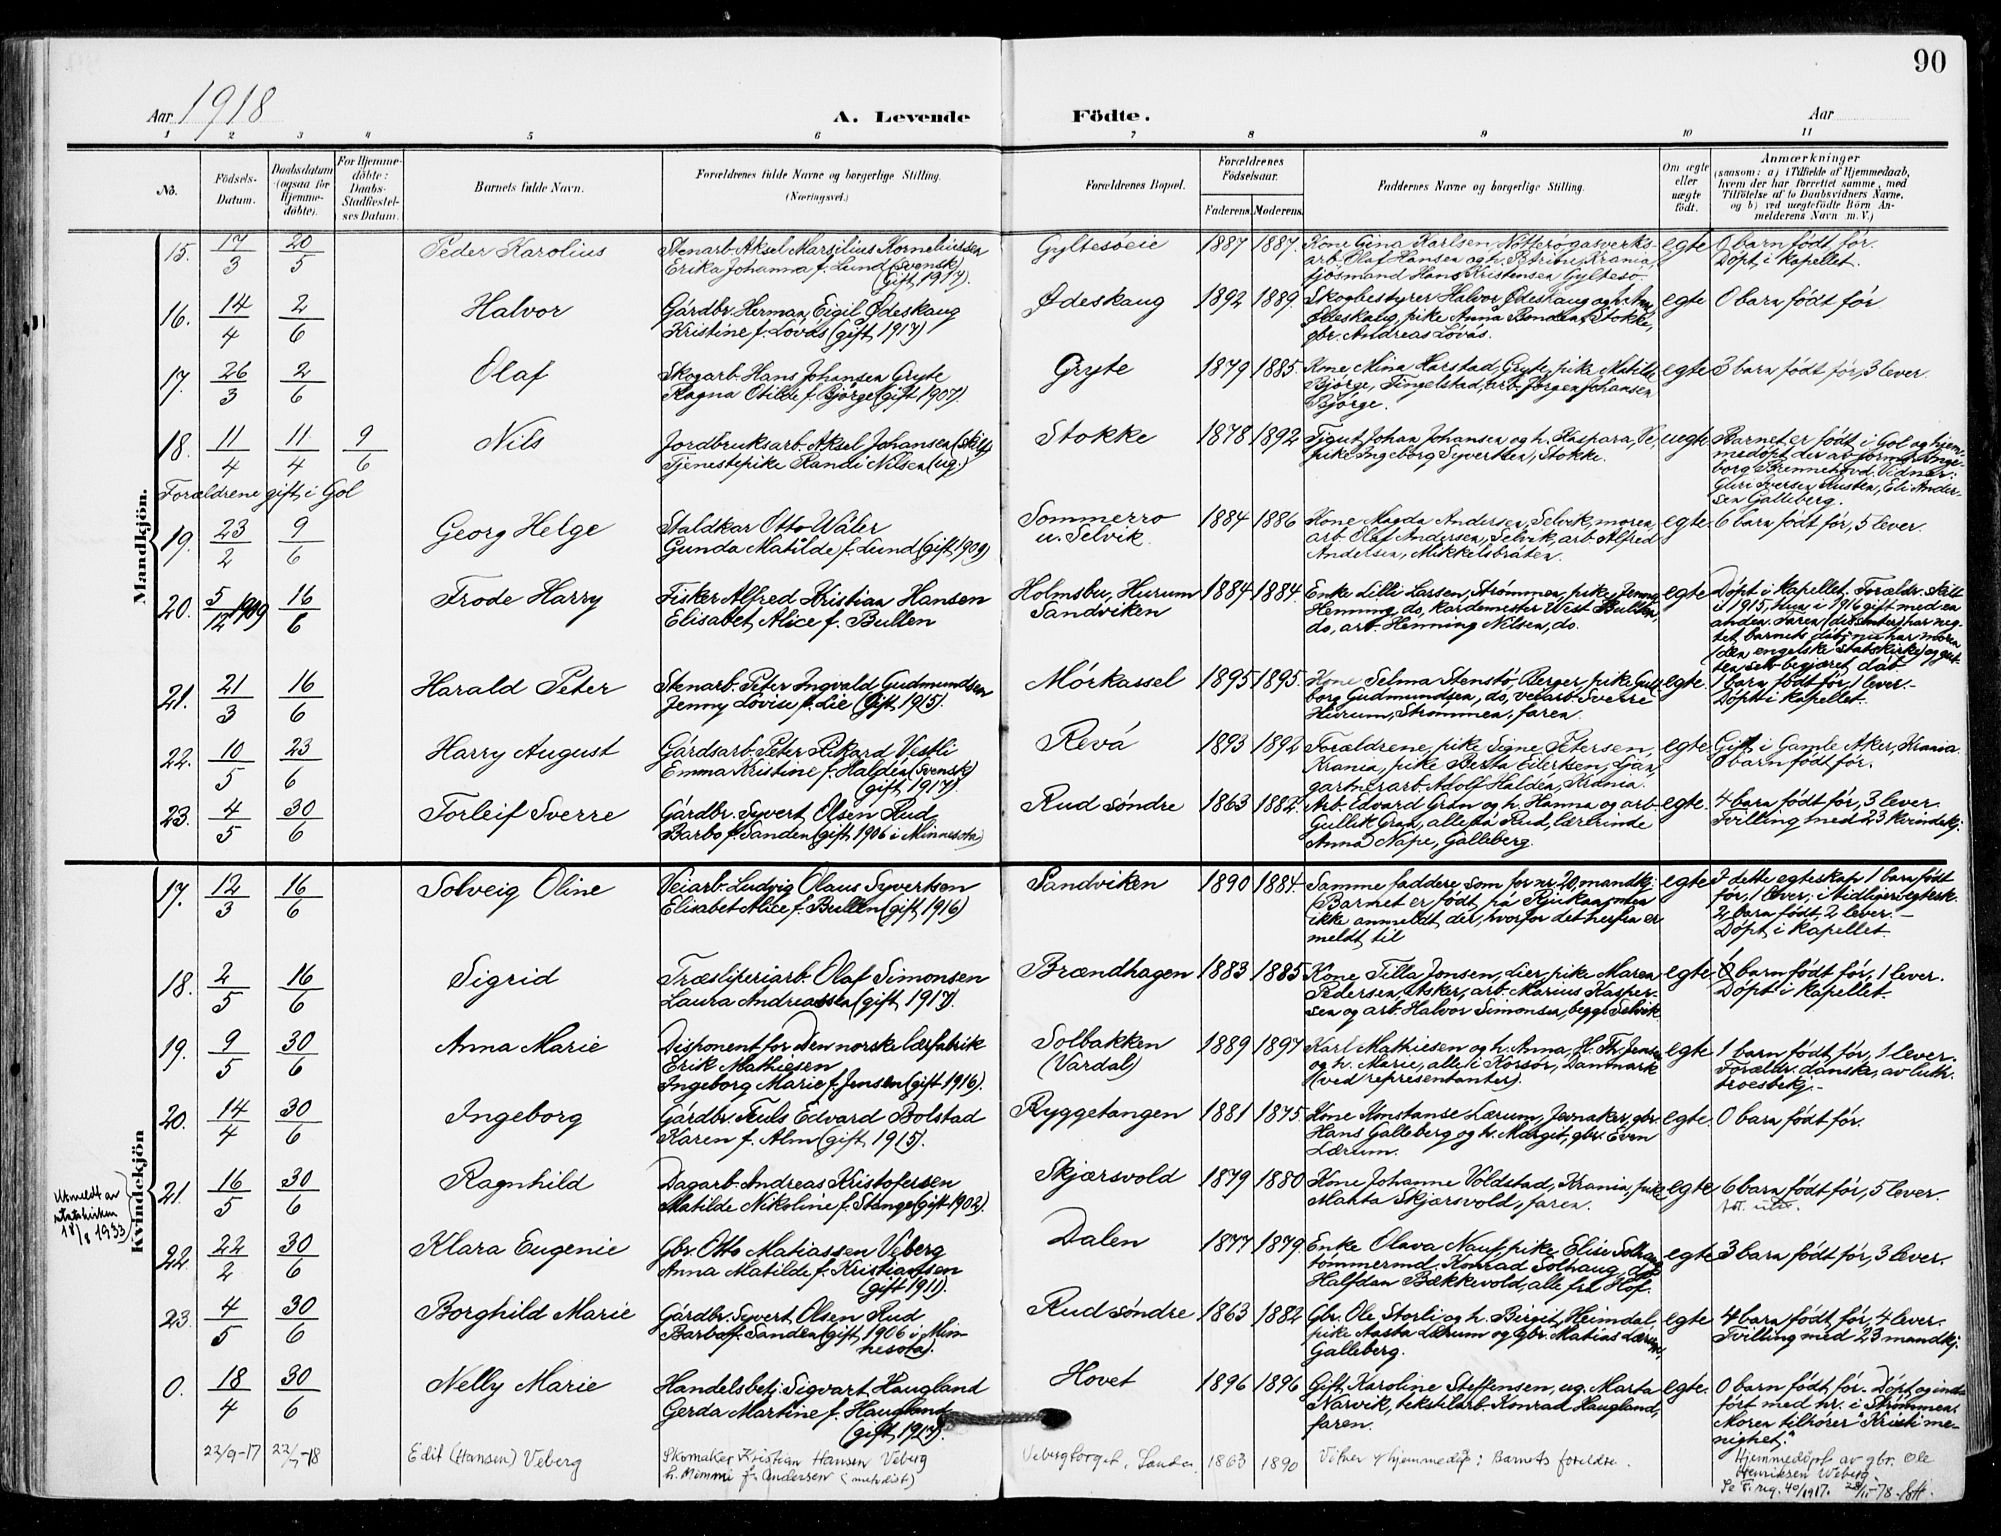 90
Aar 1918
A. Levende Födte.
Aar
1 2 3 4 5 6 7 8 9 10 11
No.
Födsels-Datum.
Daabsdatum (ogsaa for Hjemme-döbte).
For Hjemme-döbte: Daabs-Stadfæstel-ses Datum.
Barnets fulde Navn.
Forældrenes fulde Navne og borgerlige Stilling.
(Næringsvei.)
Forældrenes Bopæl.
Forældrenes Födselsaar.
Faderens. Moderens.
Faddernes Navne og borgerlige Stilling.
Om ægte eller uægte födt.
Anmærkninger
(saasom: a) i Tilfælde af Hjemmedaab,
hvem der har forrettet samme, med
Tilföielse af to Daabsvidners Navne,
og b) ved uægtefödte Börn An-
melderens Navn m. V.)
Mandkjön.
15. 17/3 20/5 Peder Karolius
Stenarb. Aksel Marsilius Korneliussen
Erika Johanna f. Lund (svensk)
(gift 1917).
Gyltesöeie 1887 1887.
Kone Gina Karlsen Nøtterø, gasverks-
arb. Olaf Hansen og h. Petrine, Krania,
sjösmand Hans Kristensen Gyltesö
egte 0 barn født før.
Døpt i kapellet.
16. 14/4 2/6 Halvor
Gårdbr. Herman Eigil Ødeskaug
Kristine f. Lövås (gift 1917)
Ødeskaug 1892 1889.
Skogbestyrer Halvor Ødeskaug og h.
Ødeskaug, pike Anna Bonden, Stokke,
gbr. Andreas Lövås.
egte 0 barn født før
17. 26/3 2/6 Olaf
Skogarb. Hans Johansen Gryte
Ragna Otilde f. Björge (gift 1907).
Gryte 1879 1885.
Kone Mina Harstad, Gryte, pike Matilde
Björge, Tingelstad, arb. Jörgen Johansen
Björge.
egte 3 barn født før, 3 lever.
18. 11/4 11/4 9/6 Nils
Jordbruksarb. Aksel Johansen (skilt)
Tjenestepike Randi Nilsen (ug.)
Stokke 1878 1892
Johan Johansen og h. Kaspara,
pike Ingeborg Syvertsen, Stokke.
uegte. Barnet er født i Gol og hjem-
medøpt der av Inge-
borg Brennehovd. Vidner:
Guri Iversen Rusten, Eli Ander-
sen Galleberg.
Forældrene gift i Gol
19. 23/2 9/6 Georg Helge
Staldkar Otto Wåler
Gunda Matilde f. Lund (gift 1909)
Sommerro
u. Selvik 1884 1886
Kone Magda Andersen, Selvik, moren,
arb. Olaf Andersen, Selvik, arb. Alfred
Andelsen, Mikkelsbråten.
egte. 6 barn født før, 5 lever.
20. 5/12 1909 16/6 Frode Harry
Fisker Alfred Kristian Hansen
Elisabet Alice f. Bullen
Holmsbu, Hurum
Sandviken 1884 1884.
Enke Lilli Lassen, Strømmen, pike Jenny
Henning do, kardemester West Bullen,
do, arb. Henning Nilsen, do.
egte. Døpt i kapellet. Forældr. skilt
i 1915, hun i 1916 gift med en
anden. Faren (dissenter) har neg-
tet barnets dåb; nu har moren
(den engelske statskirke) og gut-
ten selv begjæret dåb
21. 21/3 16/6 Harald Peter
Stenarb. Peter Ingvald Gudmundsen
Jenny Lovise f. Lie (gift 1915).
Mörkassel 1895 1895.
Kone Selma Stenstö, Berger, pike Gul-
borg Gudmundsen, do, verarb. Sverre
Hurum, Strømmen, faren.
egte. 1 barn født før, 1 lever.-
Døpt i kapellet.
22. 10/5 23/6 Harry August
Gårdsarb. Peter Rikard Vestli
Emma Kristine f. Haldén (svensk)
(gift 1917)
Revå 1893 1892
Forældrene, pike Signe Petersen,
Krania, pike Berta Eilertsen, Gran,
gartnerarb. Adolf Haldén, Krania.
egte Gift i Gamle Aker, Krania.
0 barn født før.
23. 4/5 30/6 Torleif Sverre
Gårdbr. Syvert Olsen Rud
Barbo f. Sanden (gift 1906 i Minnesota)
Rud söndre 1863 1882.
Arb. Edvard Gran og h. Hanna og arb.
Gullik Gran, alle på Rud, lærerinde
Anna Nape, Galleberg.
egte. 4 barn født før, 3 lever.
Tvilling med 23 kvindekj.
Kvindekjön
17. 12/3 16/6 Solveig Oline
Veiarb. Ludvig Olaus Syvertsen
Elisabet Alice f. Bullen (gift 1916)
Sandviken 1890 1884.
Samme faddere som for nr. 20, mandkj.
(Barnet er født på Rjukan, men
ikke anmeldt der, hvorfor det herfra er
meldt til
egte. I dette egteskap 1 barn født
før, 1 lever; i tidligere egtesk.
2 barn født, 2 lever.-
Døpt i kapellet.
18. 2/5 16/6 Sigrid
Træsliperiarb. Olaf Simonsen
Laura Andreassen (gift 1917).
Brændhagen 1883 1885
Kone Tilla Jonsen, Lier, pike Maren
Pedersen, Asker, arb. Marius Kasper-
sen og arb. Halvor Simonsen, begge Selvik
egte. barn født før, 1 lever.
Døpt i kapellet.
19. 9/5 30/6 Anna Marie
Disponent for Den norske lærfabrik
Erik Mathiesen
Ingeborg Marie f. Jensen (gift 1916).
Solbakken
(Vardal) 1889 1897
Karl Mathiesen og h. Anna, H. Th. Jensen
og h. Marie, alle i Korsör, Danmark
(ved representanter).
egte. 1 barn født før, 1 lever.
Forældr. danske, av luth.
troesbekj.-
20. 14/4 30/6 Ingeborg
Gårdbr. Truls Edvard Bolstad
Karen f. Alm (gift 1915).
Ryggetangen 1881 1875.
Kone Konstanse Lærum, Jevnaker, gbr.
Hans Galleberg og h. Margit, gbr. Even
Lærum.
egte. 0 barn født før.
Utmeldt av
statskirken
18/8 1933
21. 16/5 30/6 Ragnhild
Dagarb. Andreas Kristofersen
Matilde Nikoline f. Stange (gift 1902).
Skjærsvold 1879 1880
Kone Johanne Voldstad, Krania, pike
Marta Skjærsvold, faren.
egte 6 barn født før, 5 lever.
22 22/2 30/6 Klara Eugenie
Gbr. Otto Matiassen Veberg
Anna Matilde f. Kristiansen
(gift 1911).
Dalen 1877 1879.
Enke Olava Nauf, pike Elise Solhaug,
tømmermd. Konrad Solhaug,
Halfdan Bækkevold, alle fra Hof.
egte 3 barn født før, 3 lever.
23. 4/5 30/6 Borghild Marie
Gårdbr. Syvert Olsen Rud
Barbo f. Sanden (gift 1906 i Min-
nesota).
Rud söndre 1863 1882
Gbr. Ole Storli og h. Birgit, Heimdal,
pike Aasta Lærum og Gbr. Matias Lærum,
Galleberg.
egte 4 barn født før, 4 lever.
Tvilling med 23 mandkj.
0. 18/4 30/6 Nelly Marie
Handelsbetj. Sigvart Haugland
Gerda Martine f. Haugland
(gift 1917).
Hovet 1896 1896
Gift Karoline Steffensen, ug. Marta
Narvik, tekstilarb. Konrad Haugland,
faren.
egte. 0 barn født før. Døpt og ind-
ført med nr. i Strømmen.
Moren tilhører "Kristi me-
nighet."
22/9-17 Edit (Hansen) Veberg
Skomaker Kristian Hansen Veberg
h. Mimmi f. Andersen (metodist)
Vebergtorget, Sande 1863 1890
Vitner v/hjemmedåp: Barnets foreldre.
Hjemmedöpt av gbr. Ole
Henriksen Weberg.
Se F. reg. 40/1917.